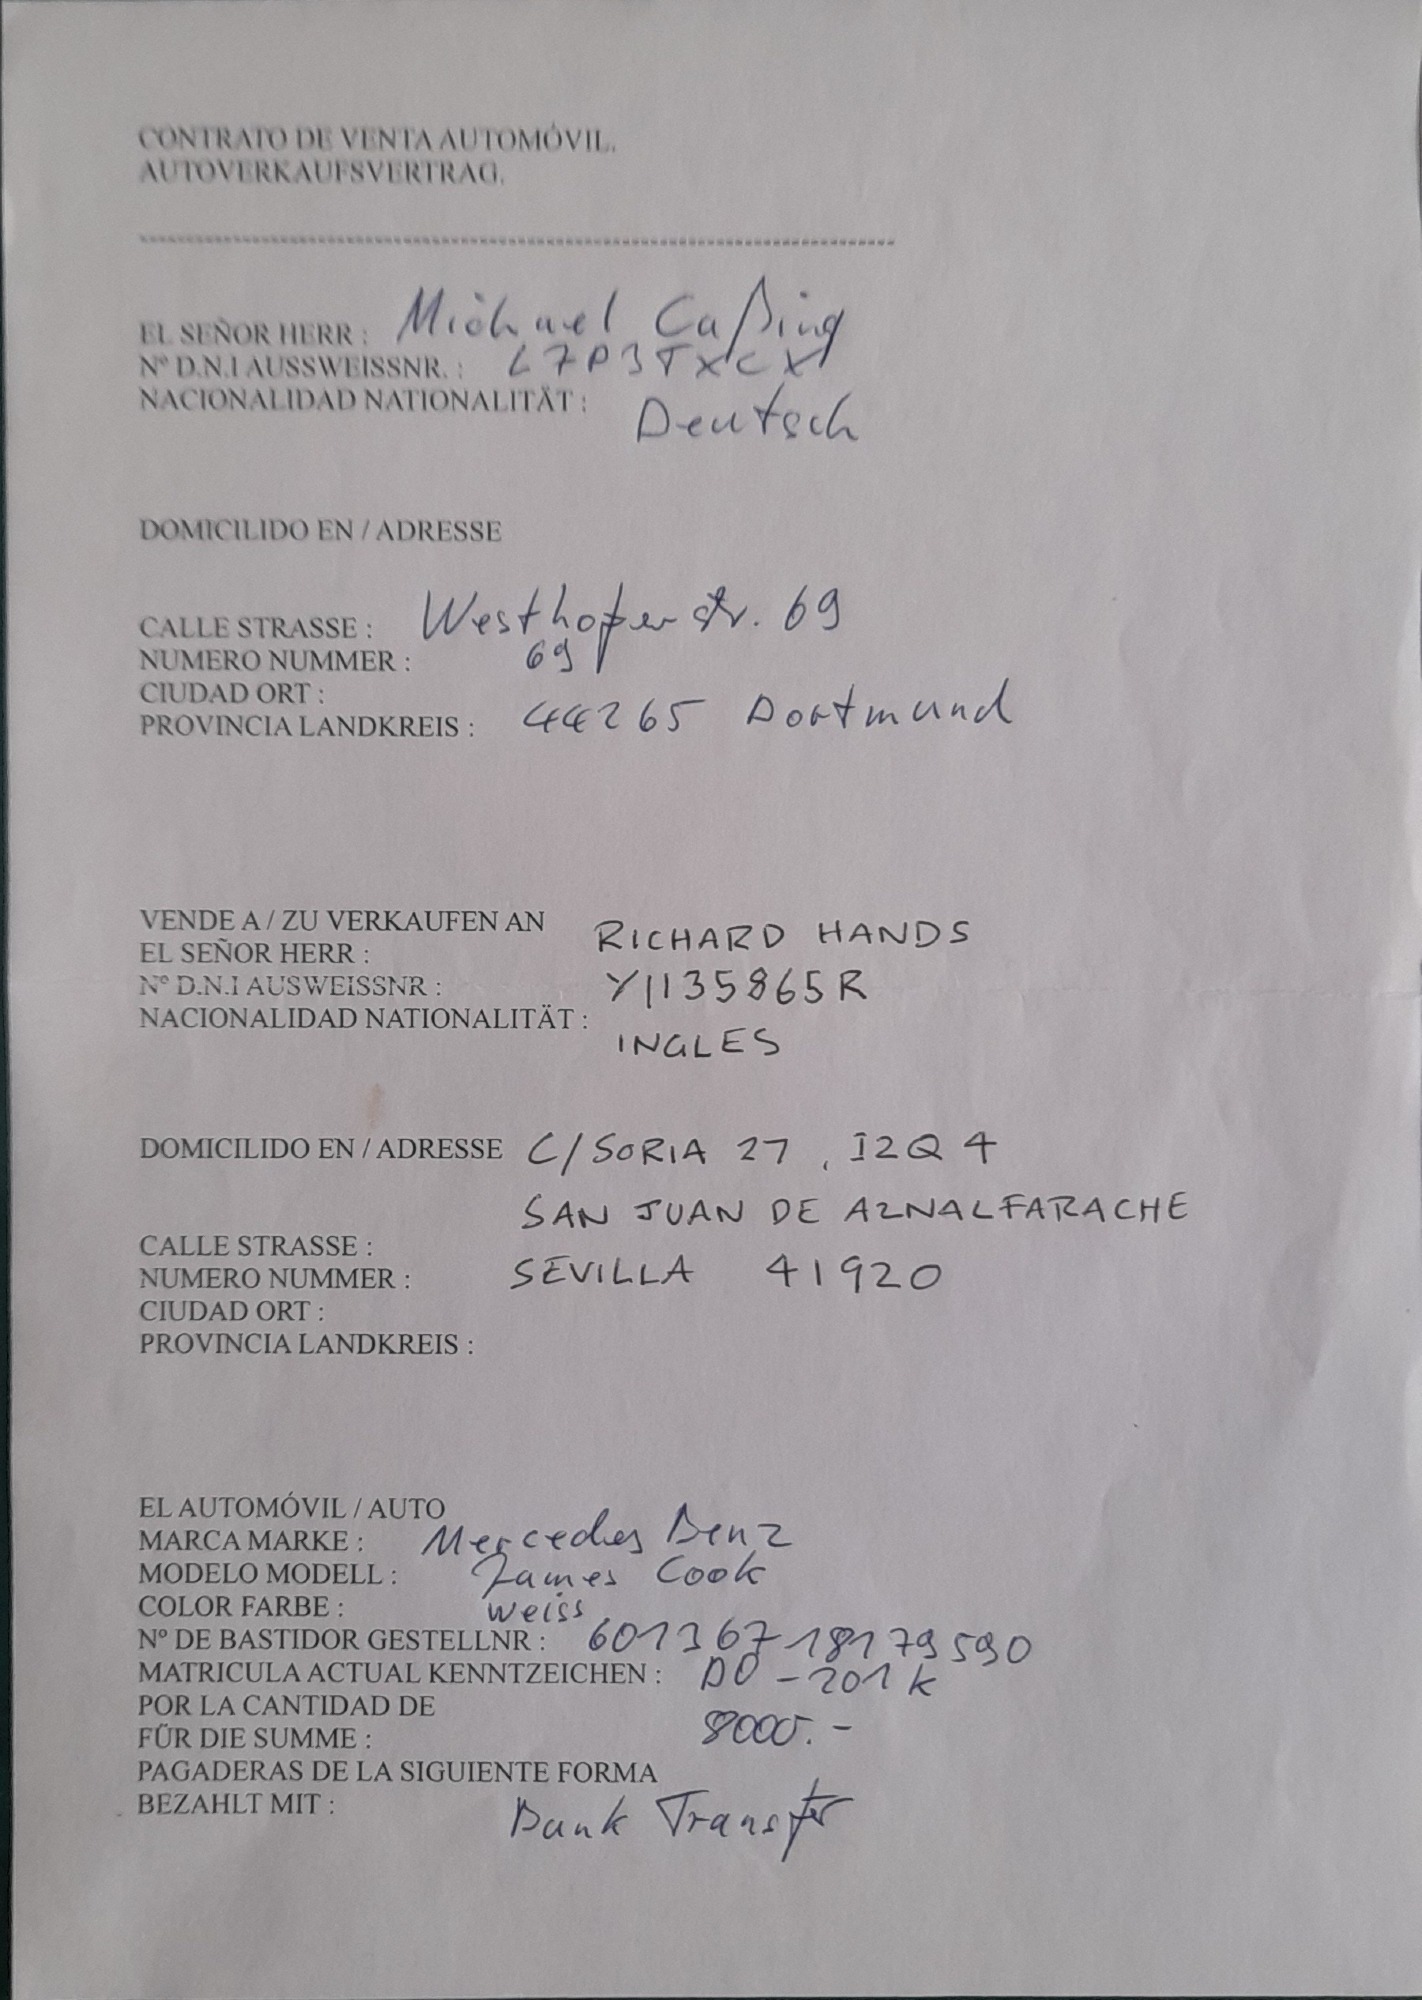 CONTRATO DE VENTA AUTOMÓVIL.
AUTOVERKAUFSVERTRAG.
----------------------------------------------------------------------
EL SEÑOR HERR : Michael Caßing
Nº D.N.I AUSSWEISSNR. : L7P3TXCX1
NACIONALIDAD NATIONALITÄT : Deutsch
DOMICILIDO EN / ADRESSE
CALLE STRASSE : Westhofener str. 69
NUMERO NUMMER : 69
CIUDAD ORT :
PROVINCIA LANDKREIS : 44265 Dortmund
VENDE A / ZU VERKAUFEN AN
EL SEÑOR HERR : RICHARD HANDS
Nº D.N.I AUSWEISSNR : Y1135865R
NACIONALIDAD NATIONALITÄT : INGLES
DOMICILIDO EN / ADRESSE C/SORIA 27, IZQ 4
SAN JUAN DE AZNALFARACHE
CALLE STRASSE :
NUMERO NUMMER : SEVILLA 41920
CIUDAD ORT :
PROVINCIA LANDKREIS :
EL AUTOMÓVIL / AUTO
MARCA MARKE : Mercedes Benz
MODELO MODELL : James Cook
COLOR FARBE : weiss
Nº DE BASTIDOR GESTELLNR : 60136718179590
MATRICULA ACTUAL KENNTZEICHEN : DO - 201 K
POR LA CANTIDAD DE
FÜR DIE SUMME : 8000.-
PAGADERAS DE LA SIGUIENTE FORMA
BEZAHLT MIT : Bank Transfer